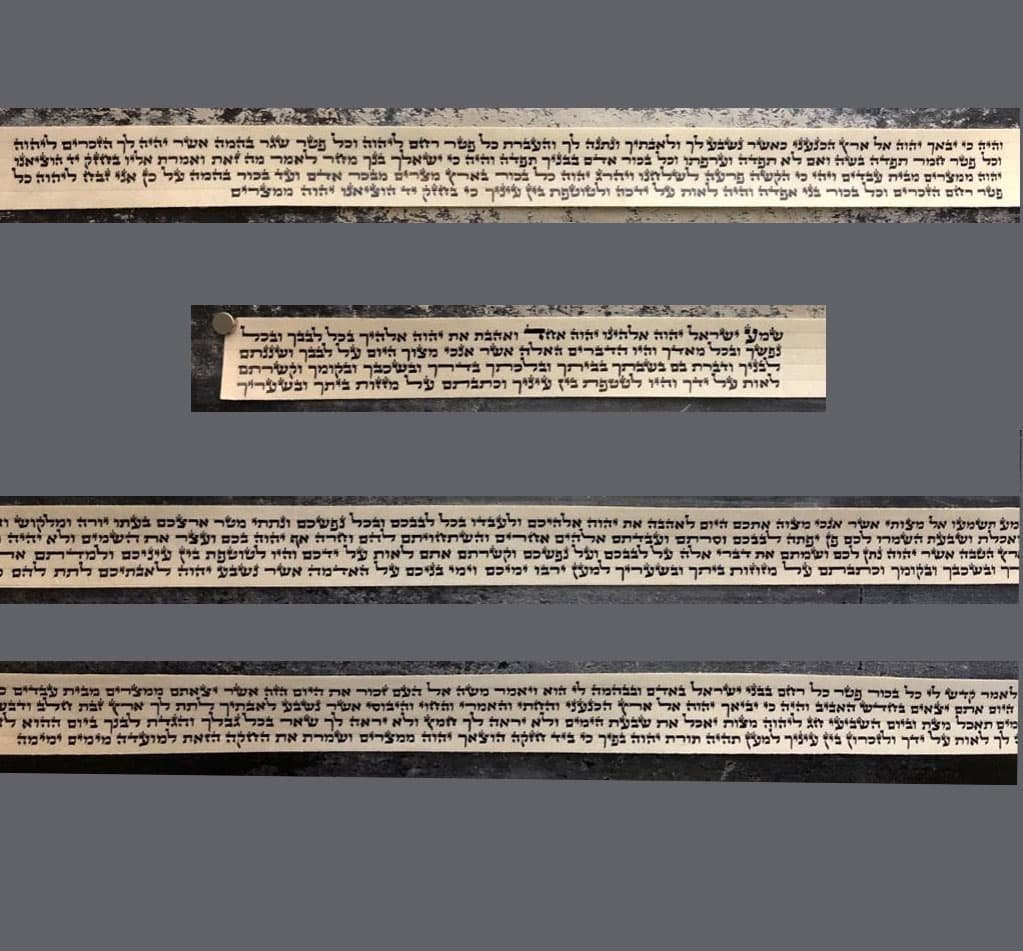 והיה כי יבאך יהוה אל ארץ הכנעני כאשר נשבע לך ולאבתיך ונתנה לך והעברת כל פטר רחם ליהוה וכל פטר שגר בהמה אשר יהיה לך הזכרים ליהוה
וכל פטר חמר תפדה בשה ואם לא תפדה וערפתו וכל בכור אדם בבניך תפדה והיה כי ישאלך בנך מחר לאמר מה זאת ואמרת אליו בחזק יד הוציאנו
יהוה ממצרים מבית עבדים ויהי כי הקשה פרעה לשלחנו ויהרג יהוה כל בכור בארץ מצרים מבכר אדם ועד בכור בהמה על כן אני זבח ליהוה כל
פטר רחם הזכרים וכל בכור בני אפדה והיה לאות על ידכה ולטוטפת בין עיניך כי בחזק יד הוציאנו יהוה ממצרים
שמע ישראל יהוה אלהינו יהוה אחד ואהבת את יהוה אלהיך בכל לבבך ובכל
נפשך ובכל מאדך והיו הדברים האלה אשר אנכי מצוך היום על לבבך ושננתם
לבניך ודברת בם בשבתך בביתך ובלכתך בדרך ובשכבך ובקומך וקשרתם
לאות על ידך והיו לטטפת בין עיניך וכתבתם על מזזות ביתך ובשעריך
שמע תשמעו אל מצותי אשר אנכי מצוה אתכם היום לאהבה את יהוה אלהיכם ולעבדו בכל לבבכם ובכל נפשכם ונתתי מטר ארצכם בעתו יורה ומלקוש
ואכלת ושבעת השמרו לכם פן יפתה לבבכם וסרתם ועבדתם אלהים אחרים והשתחויתם להם וחרה אף יהוה בכם ועצר את השמים ולא יהיה
הטבה אשר יהוה נתן לכם ושמתם את דברי אלה על לבבכם ועל נפשכם וקשרתם אתם לאות על ידכם והיו לטוטפת בין עיניכם ולמדתם
ובשכבך ובקומך וכתבתם על מזוזות ביתך ובשעריך למען ירבו ימיכם וימי בניכם על האדמה אשר נשבע יהוה לאבתיכם לתת להם
לאמר קדש לי כל בכור פטר כל רחם בבני ישראל באדם ובבהמה לי הוא ויאמר משה אל העם זכור את היום הזה אשר יצאתם ממצרים מבית עבדים
היום אתם יצאים בחדש האביב והיה כי יביאך יהוה אל ארץ הכנעני והחתי והאמרי והחוי והיבוסי אשר נשבע לאבתיך לתת לך ארץ זבת חלב ודבש
תאכל מצת וביום השביעי חג ליהוה מצות יאכל את שבעת הימים ולא יראה לך חמץ ולא יראה לך שאר בכל גבלך והגדת לבנך ביום ההוא
לך לאות על ידך ולזכרון בין עיניך למען תהיה תורת יהוה בפיך כי ביד חזקה הוצאך יהוה ממצרים ושמרת את החקה הזאת למועדה מימים ימימה